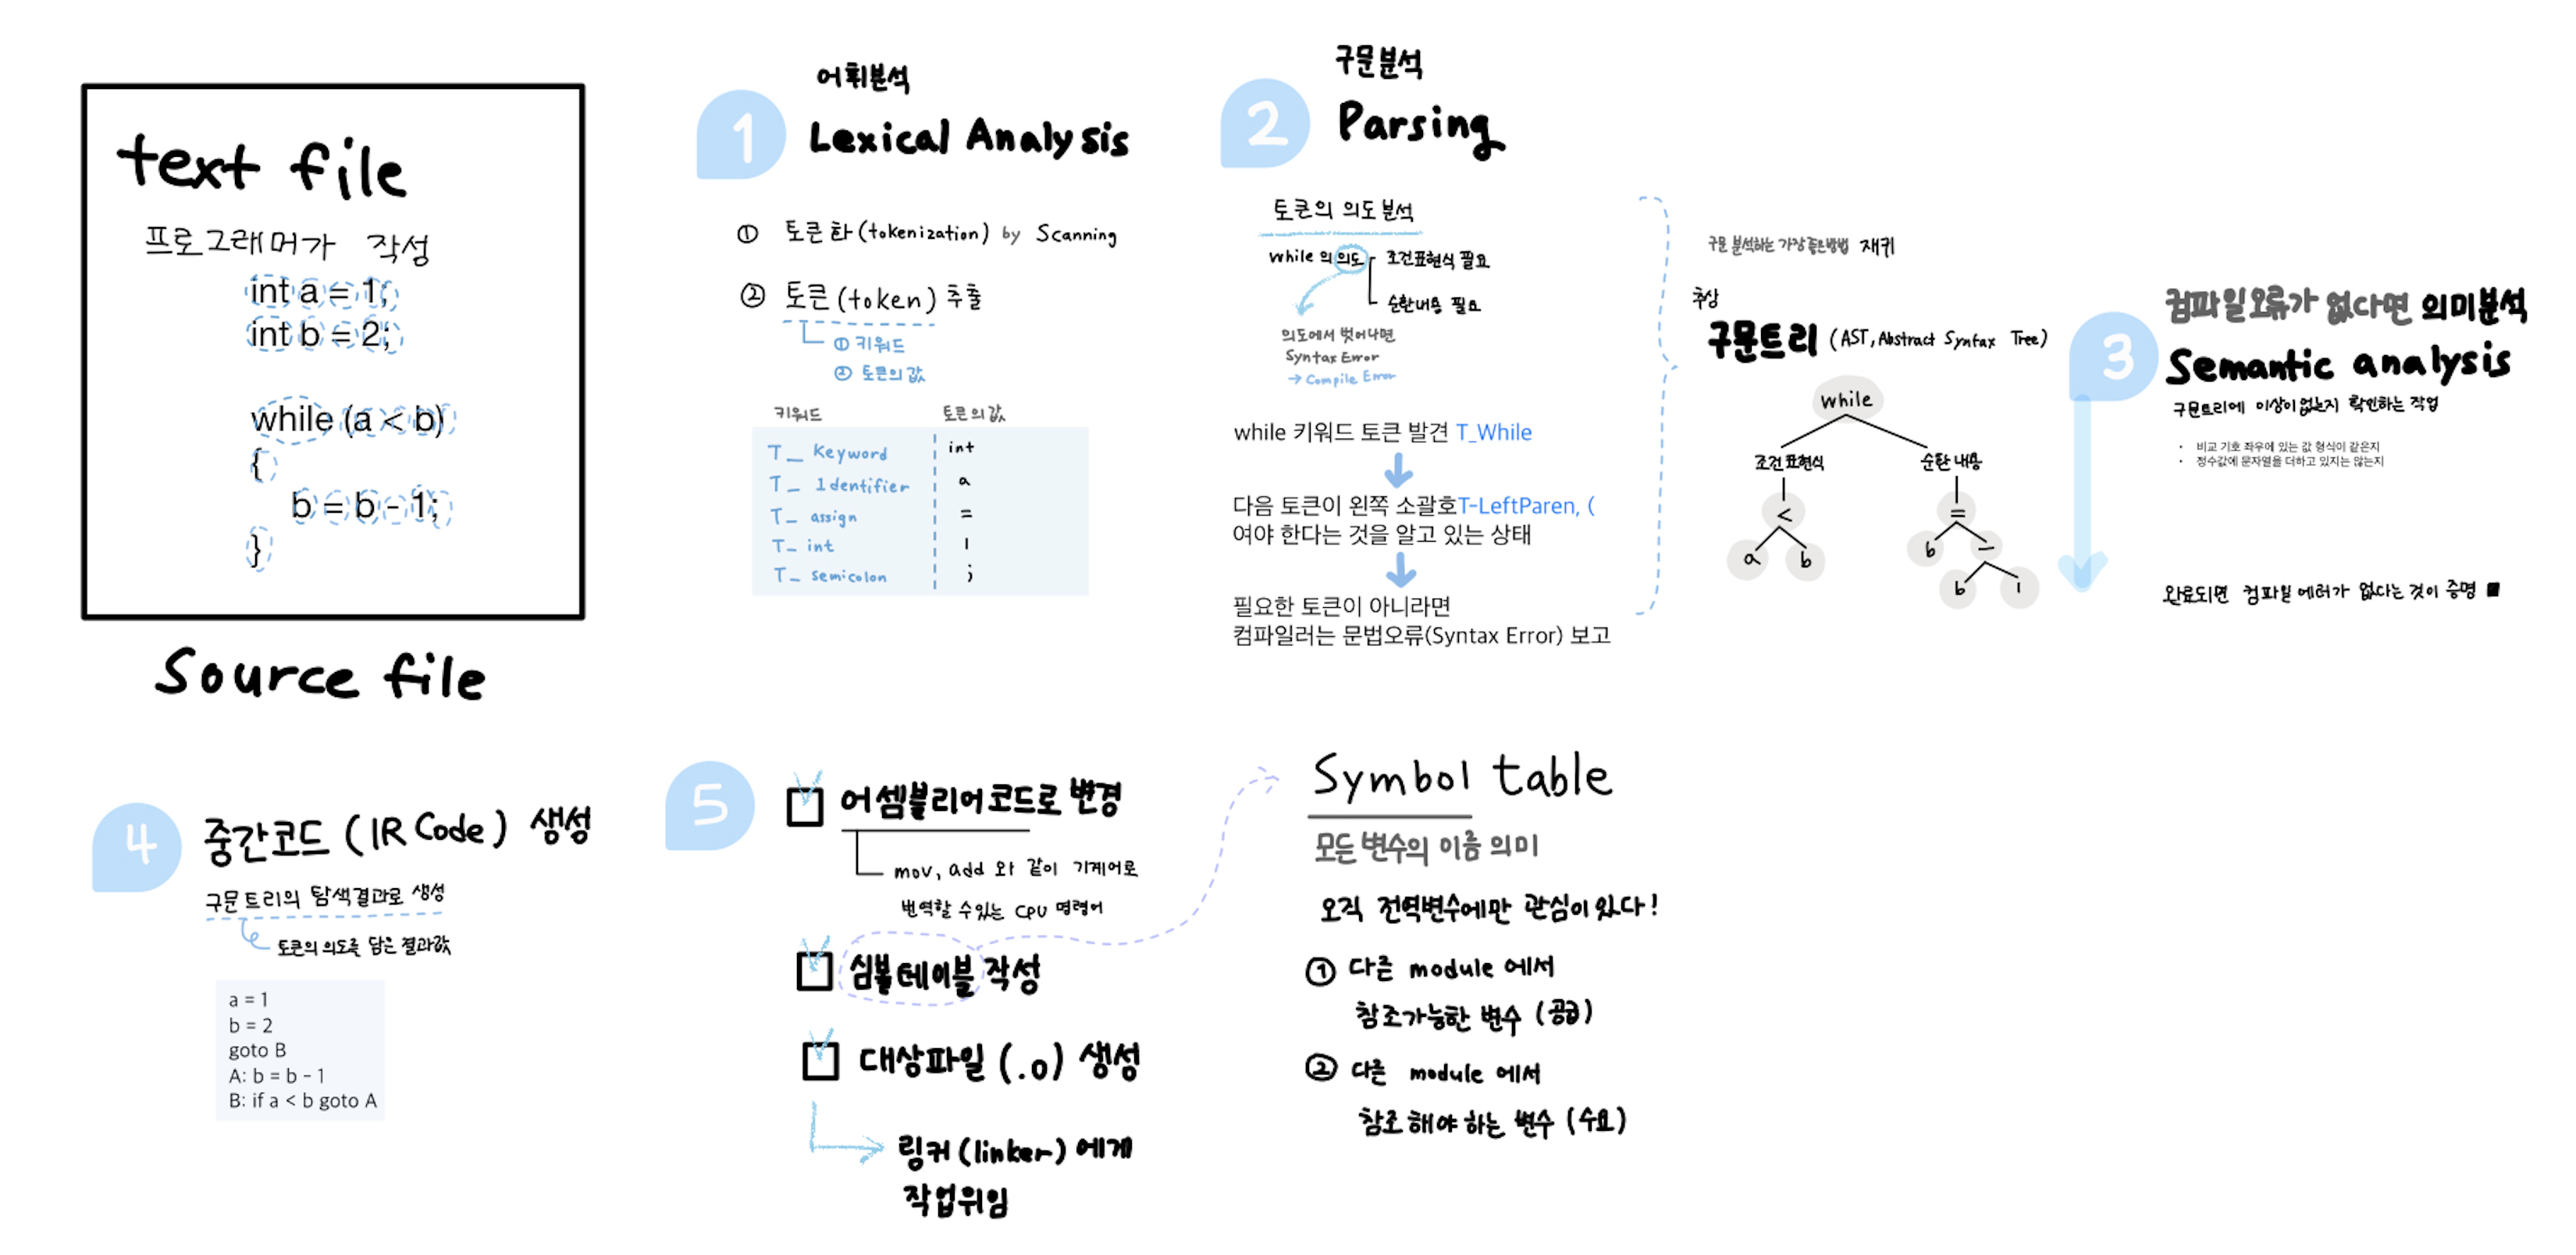 text file
프로그래머가 작성
int a = 1;
int b = 2;
while (a < b)
{
b = b - 1;
}
Source file
1
어휘분석
Lexical Analysis
① 토큰화(tokenization) by Scanning
② 토큰(token) 추출
① 키워드
② 토큰의 값
키워드 토큰의 값
T_ Keyword int
T_ Identifier a
T_ assign =
T_ int 1
T_ semicolon ;
2
구문분석
Parsing
토큰의 의도 분석
while 의 의도 조건표현식 필요
순환내용 필요
의도에서 벗어나면
Syntax Error
→ Compile Error
while 키워드 토큰 발견 T_While
다음 토큰이 왼쪽 소괄호T-LeftParen, (
여야 한다는 것을 알고 있는 상태
필요한 토큰이 아니라면
컴파일러는 문법오류(Syntax Error) 보고
구문 분석하는 가장 좋은 방법 재귀
추상
구문트리 (AST, Abstract Syntax Tree)
while
조건 표현식 순환 내용
< =
a b b -
b 1
3
컴파일오류가 없다면 의미분석
Semantic analysis
구문트리에 이상이 없는지 확인하는 작업
• 비교 기호 좌우에 있는 값 형식이 같은지
• 정수값에 문자열을 더하고 있지는 않는지
완료되면 컴파일 에러가 없다는 것이 증명 ■
4
중간코드 (IR Code) 생성
구문트리의 탐색결과로 생성
토큰의 의도를 담은 결과값
a = 1
b = 2
goto B
A: b = b - 1
B: if a < b goto A
5
어셈블리어코드로 변경
mov, add 와 같이 기계어로
번역할 수 있는 CPU 명령어
심볼테이블 작성
대상파일 (.o) 생성
링커(linker)에게
작업위임
Symbol table
모든 변수의 이름 의미
오직 전역변수에만 관심이 있다!
① 다른 module 에서
참조가능한 변수 (공급)
② 다른 module 에서
참조해야 하는 변수 (수요)